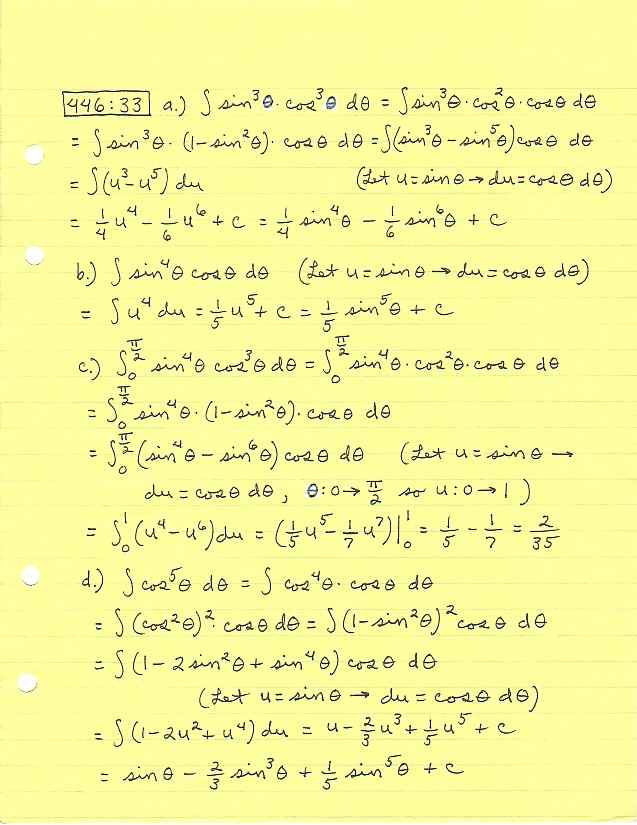 446:33 a.) ∫ sin³θ · cos³θ dθ = ∫ sin³θ · cos²θ · cosθ dθ
= ∫ sin³θ · (1-sin²θ) · cosθ dθ = ∫(sin³θ - sin⁵θ) cosθ dθ
= ∫(u³-u⁵) du (Let u = sinθ → du = cosθ dθ)
= 1/4 u⁴ - 1/6 u⁶ + c = 1/4 sin⁴θ - 1/6 sin⁶θ + c
b.) ∫ sin⁴θ cosθ dθ (Let u = sinθ → du = cosθ dθ)
= ∫ u⁴ du = 1/5 u⁵ + c = 1/5 sin⁵θ + c
c.) ∫₀^(π/2) sin⁴θ cos³θ dθ = ∫₀^(π/2) sin⁴θ · cos²θ · cosθ dθ
= ∫₀^(π/2) sin⁴θ · (1-sin²θ) · cosθ dθ
= ∫₀^(π/2) (sin⁴θ - sin⁶θ) cosθ dθ (Let u = sinθ →
du = cosθ dθ, θ:0→π/2 so u:0→1)
= ∫₀¹ (u⁴-u⁶) du = (1/5 u⁵ - 1/7 u⁷)|₀¹ = 1/5 - 1/7 = 2/35
d.) ∫ cos⁵θ dθ = ∫ cos⁴θ · cosθ dθ
= ∫ (cos²θ)² · cosθ dθ = ∫ (1-sin²θ)² cosθ dθ
= ∫ (1-2 sin²θ + sin⁴θ) cosθ dθ
(Let u = sinθ → du = cosθ dθ)
= ∫ (1-2u²+u⁴) du = u - 2/3 u³ + 1/5 u⁵ + c
= sinθ - 2/3 sin³θ + 1/5 sin⁵θ + c